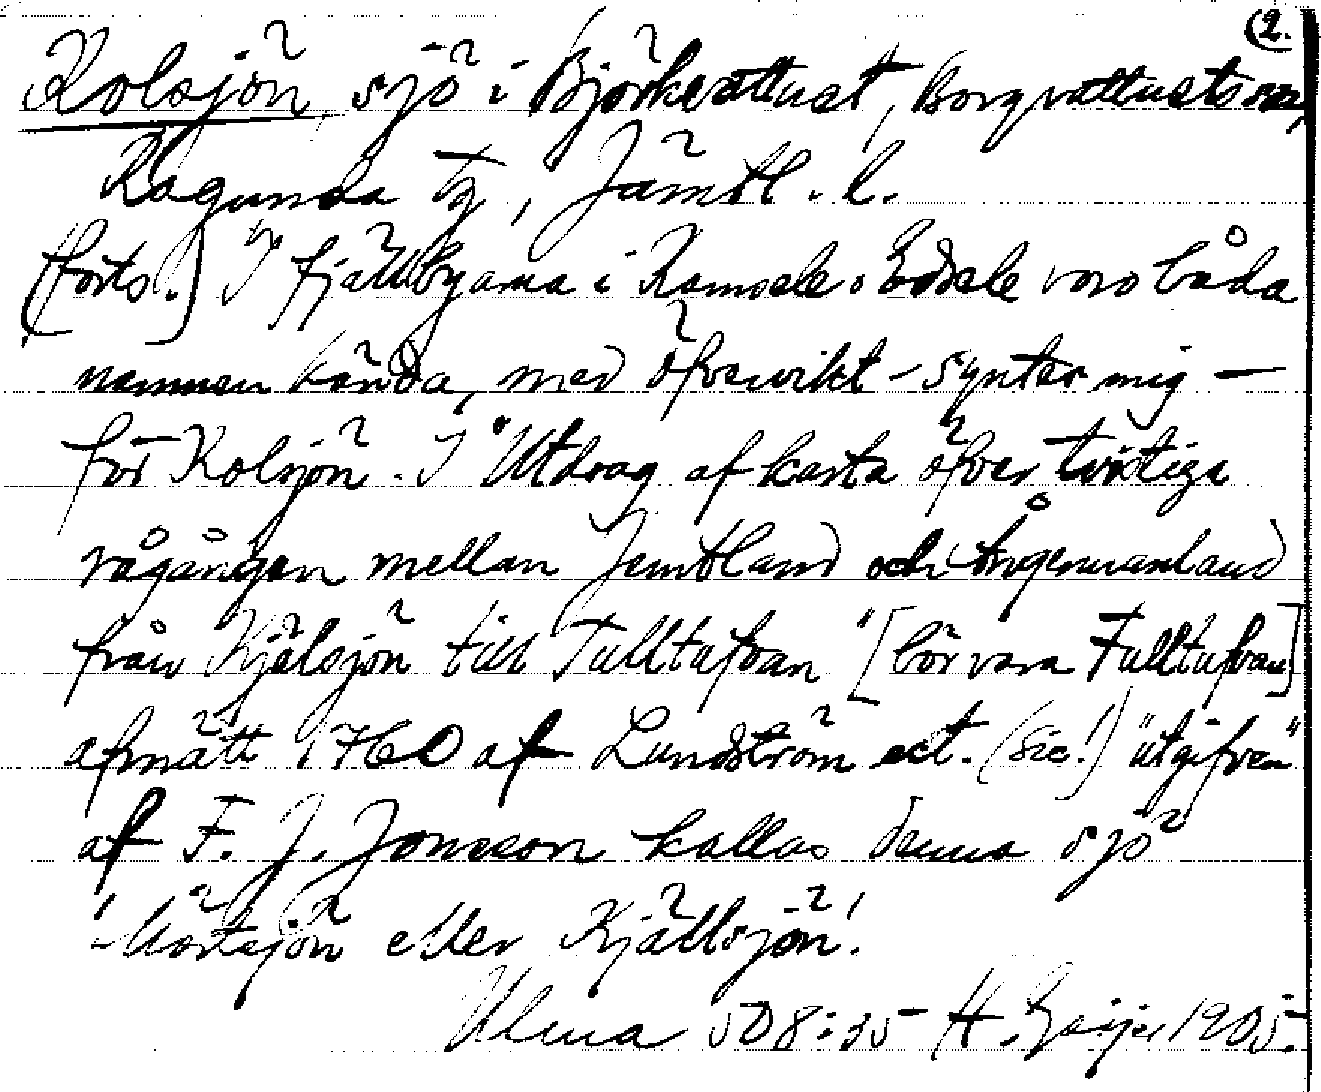 (2.
Kolsjön, sjö i Björkvattnet, Borgvattnets sn,
Ragunda tg, Jämtl. l.
(forts.) I fjällbyarna i Ramsele o Edsele voro båda
namnen kända, med öfvervikt – syntes mig –
för Kolsjön. I "Utdrag af karta öfver tvistiga
rågången mellan Jemtland och Ångermanland
från Kjälsjön till Tulltufvan" [bör vara Fulltufvan]
afmätt 1760 af Lundström ect. (sic!) "utgifven"
af F. J. Jonsson kallas denna sjö
'Mörtsjön eller Kjällsjön'.
Ulma 508:35 H. Geijer 1905.